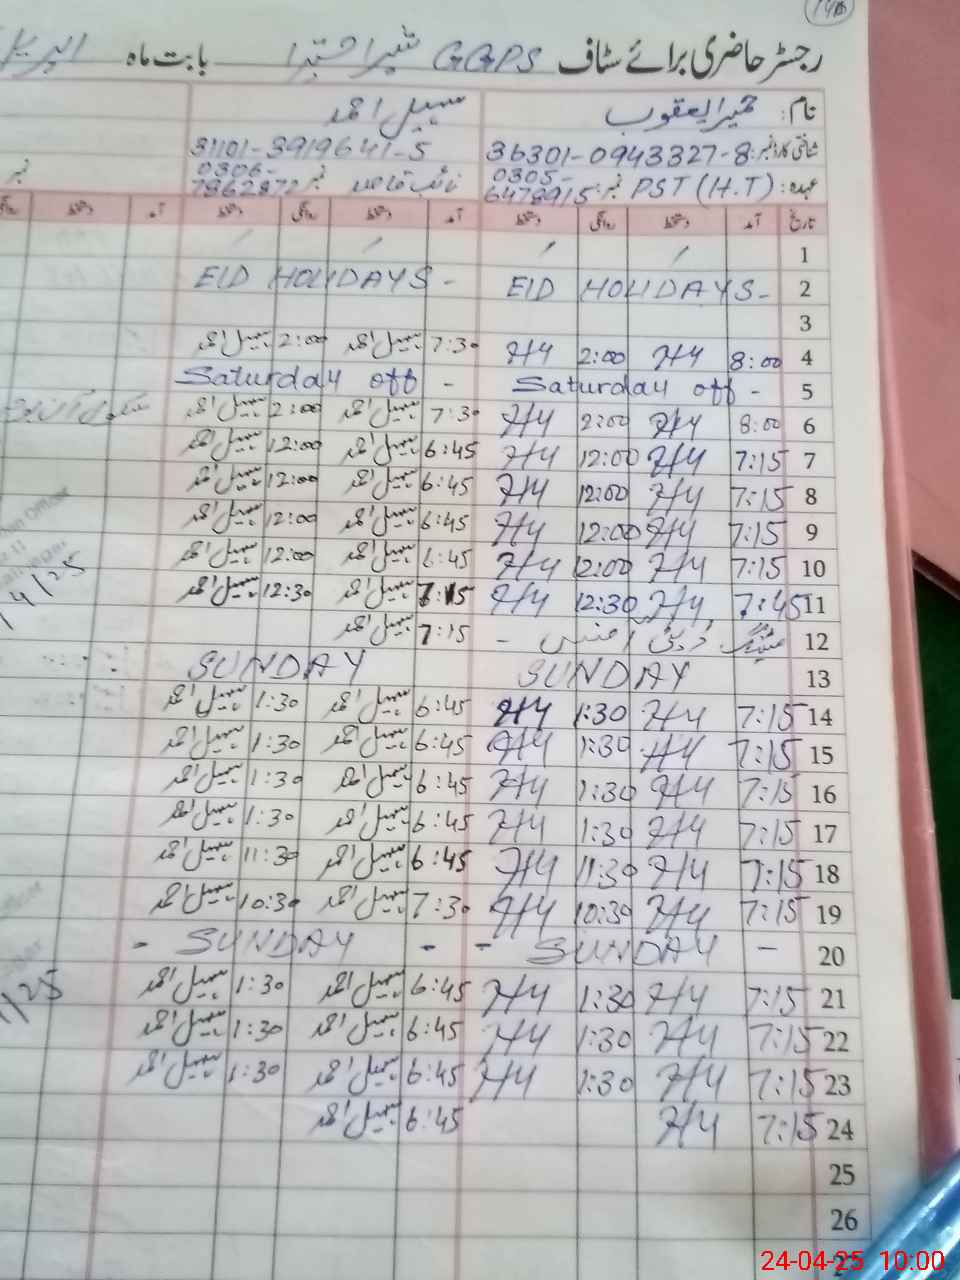 رجسٹر حاضری برائے سٹاف GGPS بابت ماہ اپریل
نام: سہیل احمد
شناختی کارڈ نمبر: 36301-0943327-8 31101-3919641-5
عہدہ: PST (H.T) نمبر: 0305-6478915 نائب قاصد نمبر 0306-7862872 نمبر
تاریخ آمد دستخط روانگی دستخط آمد دستخط روانگی دستخط آمد دستخط
1
2 EID HOLIDAYS - EID HOLIDAYS -
3
4 8:00 H4 2:00 H4 7:30 سہیل احمد 2:00 سہیل احمد
5 Saturday off - Saturday off -
6 8:00 H4 2:00 H4 7:30 سہیل احمد 2:00 سہیل احمد
7 7:15 H4 12:00 H4 6:45 سہیل احمد 12:00 سہیل احمد
8 7:15 H4 12:00 H4 6:45 سہیل احمد 12:00 سہیل احمد
9 7:15 H4 12:00 H4 6:45 سہیل احمد 12:00 سہیل احمد
10 7:15 H4 12:00 H4 6:45 سہیل احمد 12:00 سہیل احمد
11 7:45 H4 12:30 H4 7:15 سہیل احمد 12:30 سہیل احمد
12 میٹنگ ڈپٹی آفس - 7:15 سہیل احمد
13 SUNDAY SUNDAY
14 7:15 H4 1:30 H4 6:45 سہیل احمد 1:30 سہیل احمد
15 7:15 H4 1:30 H4 6:45 سہیل احمد 1:30 سہیل احمد
16 7:15 H4 1:30 H4 6:45 سہیل احمد 1:30 سہیل احمد
17 7:15 H4 1:30 H4 6:45 سہیل احمد 1:30 سہیل احمد
18 7:15 H4 11:30 H4 6:45 سہیل احمد 11:30 سہیل احمد
19 7:15 H4 10:30 H4 7:30 سہیل احمد 10:30 سہیل احمد
20 - SUNDAY - - SUNDAY -
21 7:15 H4 1:30 H4 6:45 سہیل احمد 1:30 سہیل احمد
22 7:15 H4 1:30 H4 6:45 سہیل احمد 1:30 سہیل احمد
23 7:15 H4 1:30 H4 6:45 سہیل احمد 1:30 سہیل احمد
24 7:15 H4 6:45 سہیل احمد
25
26
24-04-25 10:00